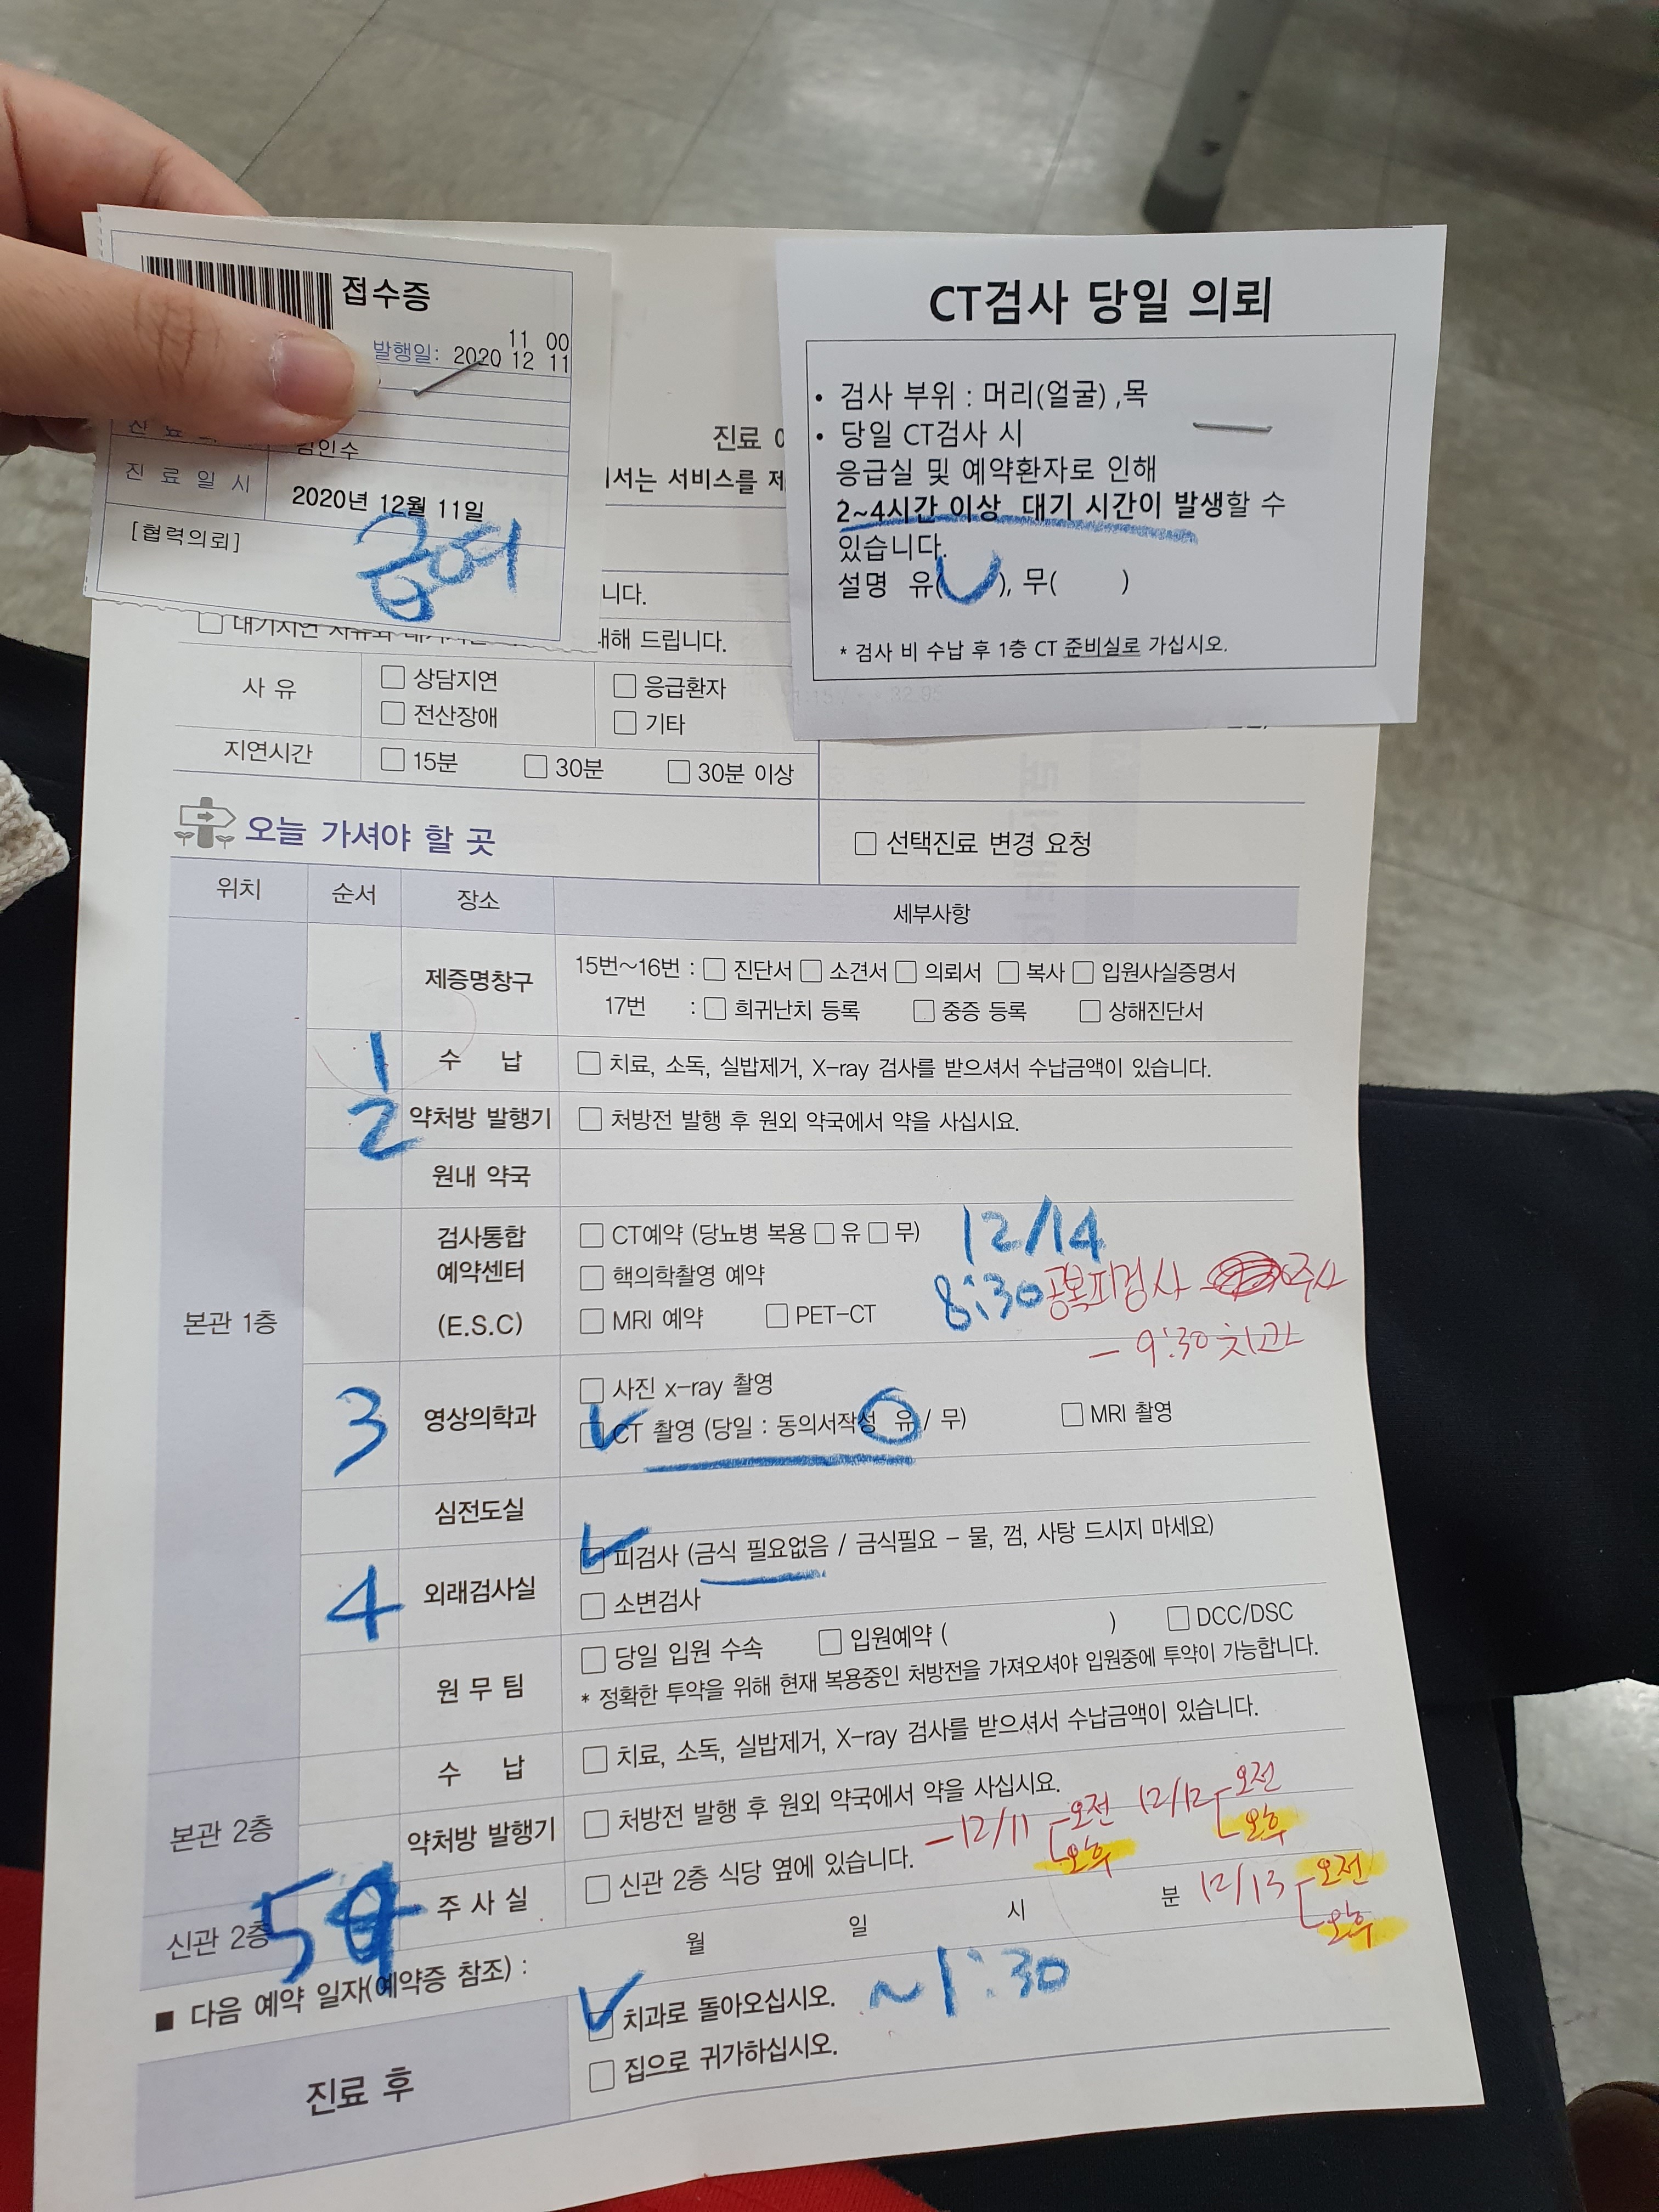 접수증
11 00
발행일: 2020 12 11
김인수
진료일시 2020년 12월 11일
[협력의뢰]
급여
CT검사 당일 의뢰
• 검사 부위 : 머리(얼굴) ,목
• 당일 CT검사 시
응급실 및 예약환자로 인해
2~4시간 이상 대기 시간이 발생할 수
있습니다.
설명 유( ), 무( )
* 검사 비 수납 후 1층 CT 준비실로 가십시오.
진료
서는 서비스를 제
니다.
드립니다.
사유
상담지연
응급환자
전산장애
기타
지연시간 15분 30분 30분 이상
오늘 가셔야 할 곳
선택진료 변경 요청
위치 순서 장소 세부사항
본관 1층
제증명창구
15번~16번 : 진단서 소견서 의뢰서 복사 입원사실증명서
17번 : 희귀난치 등록 중증 등록 상해진단서
1 수 납 치료, 소독, 실밥제거, X-ray 검사를 받으셔서 수납금액이 있습니다.
2 약처방 발행기 처방전 발행 후 원외 약국에서 약을 사십시요.
원내 약국
검사통합
예약센터
(E.S.C)
CT예약 (당뇨병 복용 유 무) 12/14
핵의학촬영 예약 8:30 공복피검사 주사
MRI 예약 PET-CT
- 9:30 치과
3 영상의학과
사진 x-ray 촬영
CT 촬영 (당일 : 동의서작성 유 / 무) MRI 촬영
심전도실
4 외래검사실
피검사 (금식 필요없음 / 금식필요 – 물, 껌, 사탕 드시지 마세요)
소변검사
원 무 팀
당일 입원 수속 입원예약 ( ) DCC/DSC
* 정확한 투약을 위해 현재 복용중인 처방전을 가져오셔야 입원중에 투약이 가능합니다.
본관 2층
수 납 치료, 소독, 실밥제거, X-ray 검사를 받으셔서 수납금액이 있습니다.
약처방 발행기 처방전 발행 후 원외 약국에서 약을 사십시요.
신관 2층 5 주 사 실 신관 2층 식당 옆에 있습니다.
- 12/11 오전 오후
12/12 오전 오후
12/13 오전 오후
■ 다음 예약 일자(예약증 참조) : 월 일 시 분
진료 후
치과로 돌아오십시오. ~1:30
집으로 귀가하십시오.